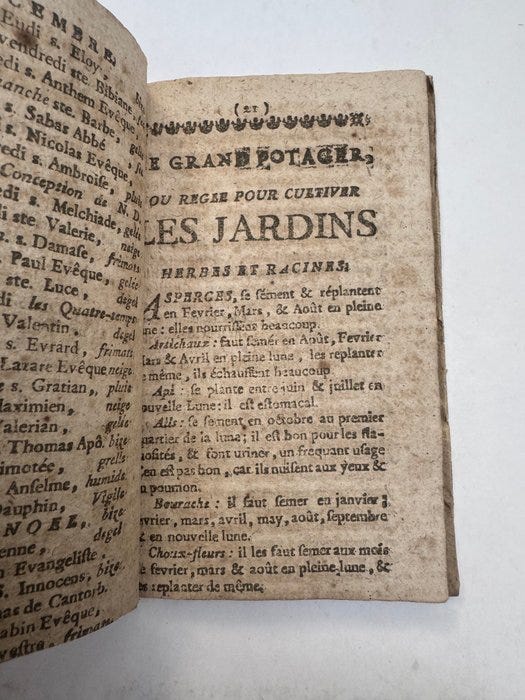 CEMBRE,
eudi s. Eloy,
vendredi ste. Bibiane,
edi s. Anthem Evêque,
manche ste. Barbe, gelée
s. Sabas Abbé
s. Nicolas Evêque,
redi s. Ambroise, pluie
Conception de N. D.
s. Melchiade, gelée
di ste Valerie, neige
s. Damase, frimats
Paul Evêque, gelée
ste. Luce, degel
di les Quatre-temps
Valentin, degel
s. Evrard, frimats
Lazare Evêque neige
s. Gratian, pluie
Maximien, neige
Valerian, gelée
Thomas Apô. bize
imotée, grelle
Anselme, humide
Dauphin, Vigile
NOEL, bize
enne, degel
n Evangeliste.
S. Innocens, bize
as de Cantorb.
abin Evêque,
vestre, frimats
(21)
E GRAND POTAGER,
OU REGLE POUR CULTIVER
LES JARDINS
HERBES ET RACINES.
ASPERGES, se sément & réplantent
en Fevrier, Mars, & Août en pleine
une : elles nourrissent beaucoup.
Artichaux : faut semer en Août, Fevrier
Mars & Avril en pleine lune, les replanter
e même, ils échauffent beaucoup
Api : se plante entre juin & juillet en
ouvelle Lune: il est estomacal.
Alls: se sement en octobre au premier
quartier de la lune; il est bon pour les fla-
uosités, & font uriner, un frequant usage
en est pas bon, car ils nuisent aux yeux &
u poumon.
Bourache : il faut semer en janvier,
evrier, mars, avril, may, août, septembre
& en nouvelle lune.
Choux-fleurs : il les faut semer aux mois
e fevrier, mars & août en pleine lune, &
es replanter de même.